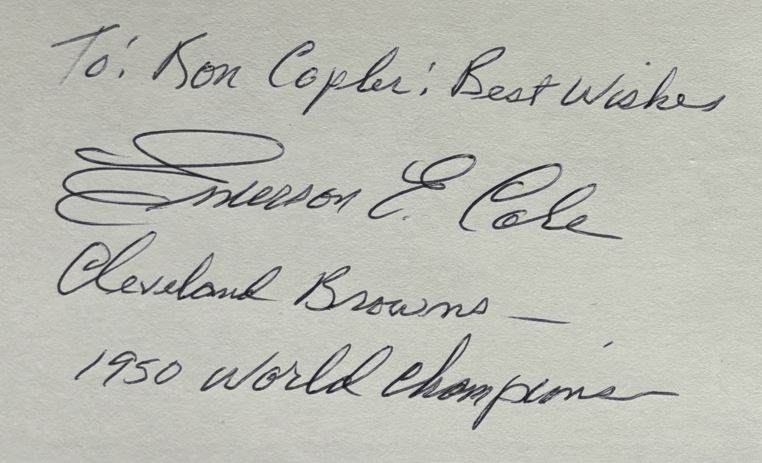 To: Ron Copler: Best Wishes
Emerson E. Cole
Cleveland Browns —
1950 World Champions